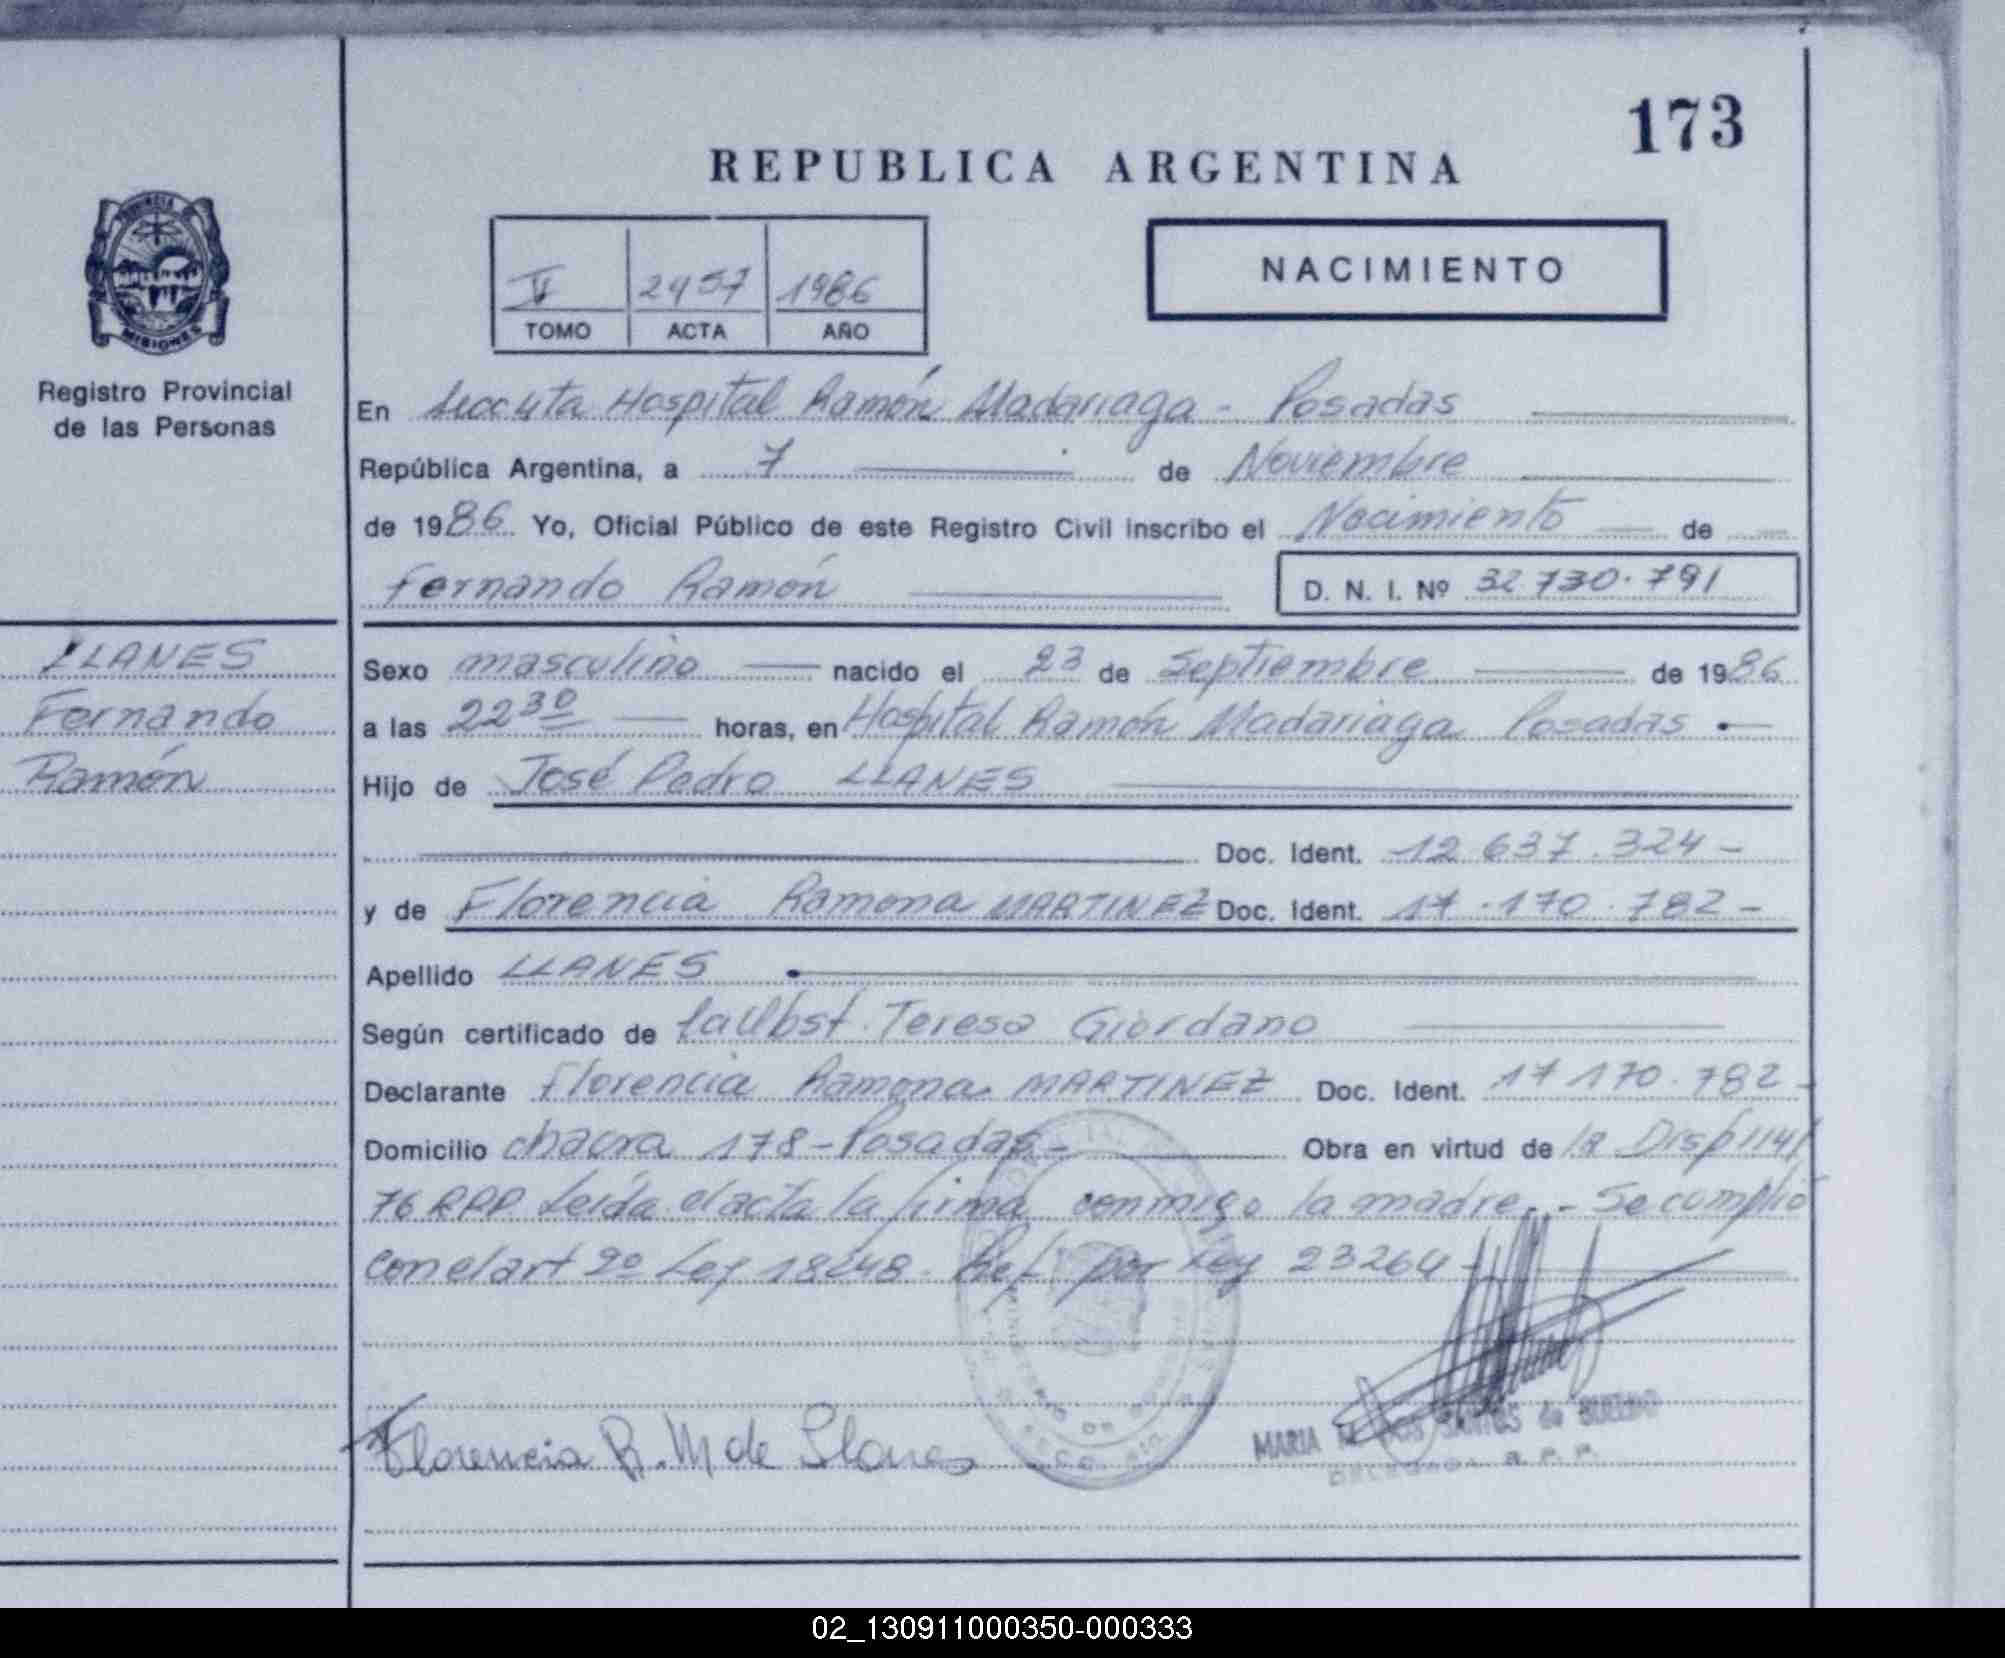 173
REPUBLICA ARGENTINA
PROVINCIA DE
MISIONES
Registro Provincial
de las Personas
V 2457 1986
TOMO ACTA AÑO
NACIMIENTO
En Hospital Ramón Madariaga - Posadas
República Argentina, a 7 de Noviembre
de 1986. Yo, Oficial Público de este Registro Civil inscribo el Nacimiento de
Fernando Ramón D. N. I. Nº 32.730.791
LLANES
Fernando
Ramón
Sexo masculino nacido el 23 de Septiembre de 1986
a las 22 30 horas, en Hospital Ramón Madariaga Posadas
Hijo de José Pedro LLANES
Doc. Ident. 12.637.324 -
y de Florencia Ramona MARTINEZ Doc. Ident. 17.170.782 -
Apellido LLANES
Según certificado de la Obst. Teresa Giordano
Declarante Florencia Ramona MARTINEZ Doc. Ident. 17.170.782 -
Domicilio chacra 178 - Posadas - Obra en virtud de la Disp 114/
76 RPP Leída el acta la firma conmigo la madre. - Se cumplió
con el art 2º Ley 18248. Ref. por Ley 23264 -
Florencia R. M de Llanes
MARIA DOS SANTOS de
02_130911000350-000333